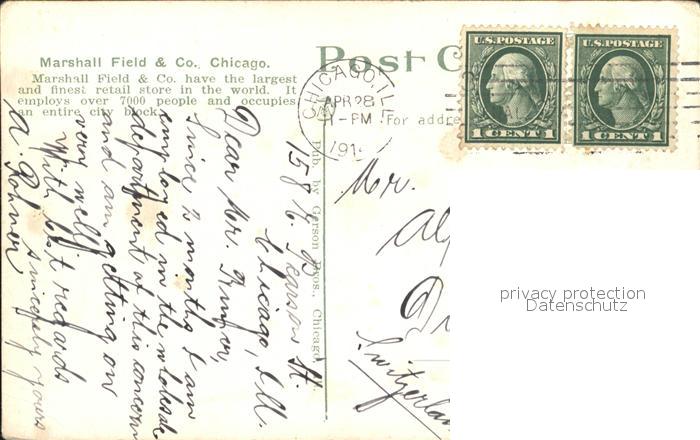 Marshall Field & Co., Chicago.
Marshall Field & Co. have the largest
and finest retail store in the world. It
employs over 7000 people and occupies
an entire city block.
Post C
For addre
CHICAGO, ILL
APR 28
11-PM
191
U.S. POSTAGE
1 CENT 1
U.S. POSTAGE
1 CENT 1
Pub. by Gerson Bros., Chicago.
158 E. Pearson St.
Chicago, Ill.
Dear Mr.
Since 2 months I am
employed in the wholesale
department of this concern
and am getting on
very well.
With best regards
sincerely yours
A.
Mr.
Switzerlan
privacy protection
Datenschutz